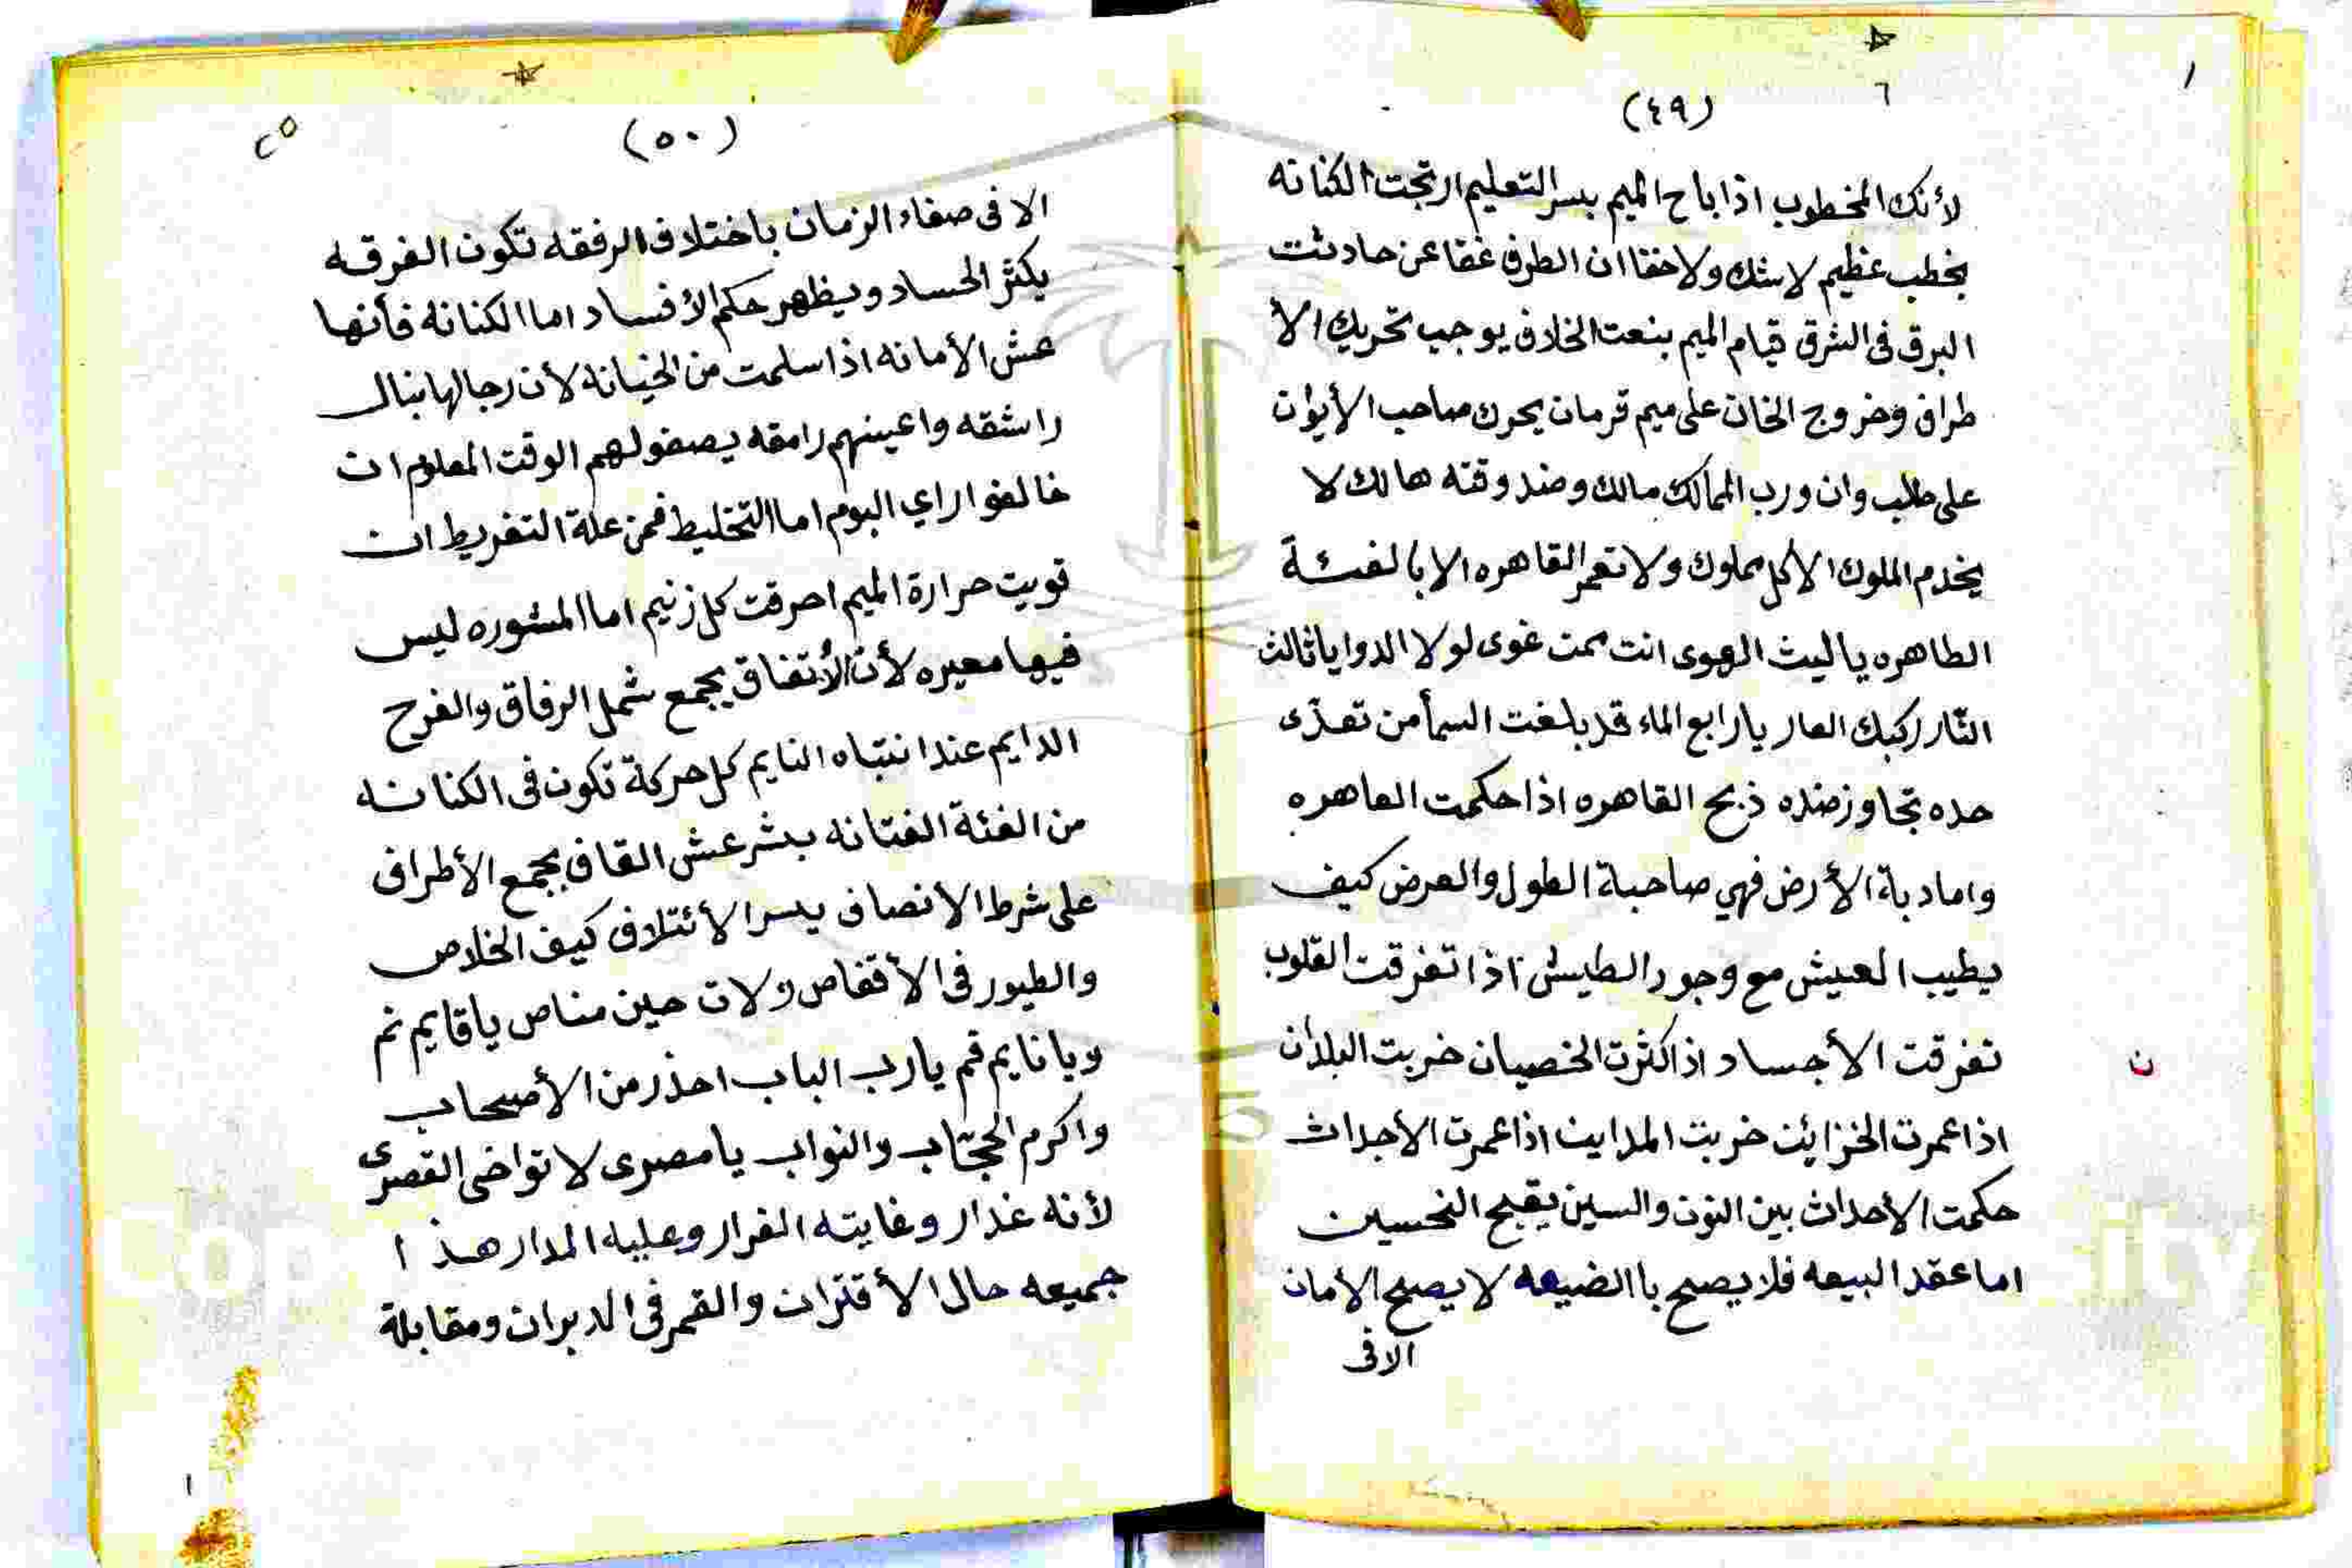 (٤٩)
لأنك المخطوب اذا باح الميم بسر التعليم ارتجت الكنانه
بخطب عظيم لاشك ولا خفا ان الطرف غفا عن حادثت
البرق فى الشرق قيام الميم بنعت الخلاف يوجب تحريك الأ
طراف وخروج الخان على ميم قرمان يحرك صاحب الأيوان
على طلب وان ورب الممالك مالك وضد وقته هالك لا
يخدم الملوك الا كل مملوك ولا تعمر القاهره الا بالفئة
الطاهره ياليث الهوى انت ممن غوى لولا الدوا يا ثالث
النّار ركبك العار يا رابع الماء قد بلغت السمأ من تعدّى
حده تجاوز ضده ذبح القاهره اذا حكمت العاهره
واما دبة الأرض فهي صاحبة الطول والعرض كيف
يطيب العيش مع وجود الطيش اذا تفرقت القلوب
تفرقت الأجساد اذا كثرت الخصيان خربت البلدان
ن
اذا عمرت الخزائن خربت المداين اذا عمرت الأجداث
حكمت الأحداث بين النون والسين يقبح التحسين
اما عقد البيعه فلا يصح با الضيعه لا يصح الأمان
الا فى
(٥٠)
الا فى صفاء الزمان باختلاف الرفقه تكون الفرقه
يكثر الحساد ويظهر حكم الأفساد اما الكنانة فأنها
عش الأمانه اذا سلمت من الخيانة لأن رجالها نبال
راشقه واعينهم رامقه يصفو لهم الوقت المعلوم ان
خالفوا راي البوم اما التخليط فمن علة التفريط ان
قويت حرارة الميم احرقت كل زنيم اما المشوره ليس
فيها معيره لأن الأتفاق يجمع شمل الرفاق والفرح
الدايم عند انتباه النايم كل حركة تكون فى الكنانه
من الفئة الفتانه بشر عش القاف بجمع الأطراف
على شرط الأنصاف يسر الأئتلاف كيف الخلاص
والطيور فى الأقفاص ولات حين مناص يا قايم نم
ويا نايم قم يارب الباب احذر من الأصحاب
واكرم الحجّاب والنواب يا مصرى لا تواخى القصرى
لأنه غدار وغايته الفرار وعليه المدار هذا
جميعه حال الأقتران والقمر فى الدبران ومقابلة